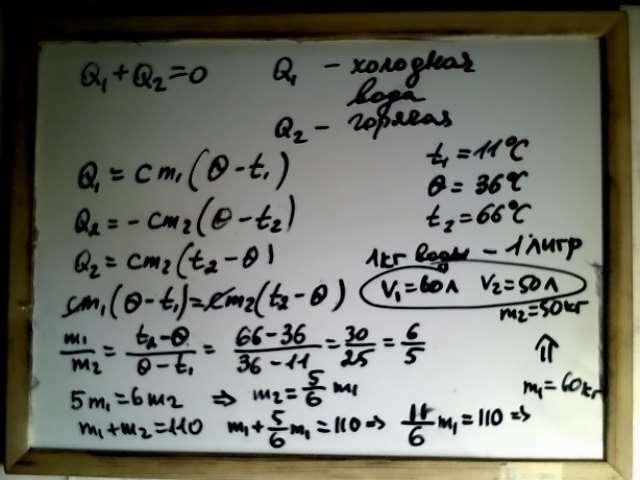 Q₁ + Q₂ = 0    Q₁ – холодная
вода
Q₂ – горячая
t₁ = 11°C
Q₁ = cm₁(θ - t₁)
θ = 36°C
Q₂ = -cm₂(θ - t₂)
t₂ = 66°C
Q₂ = cm₂(t₂ - θ)
1кг воды – 1 литр
cm₁(θ - t₁) = cm₂(t₂ - θ)
V₁ = 60л  V₂ = 50л
m₂ = 50кг
m₁/m₂ = (t₂ - θ)/(θ - t₁) = (66 - 36)/(36 - 11) = 30/25 = 6/5
⇑
m₁ = 60кг
5m₁ = 6m₂ ⇒ m₂ = 5/6 m₁
m₁ + m₂ = 110  m₁ + 5/6 m₁ = 110 ⇒ 11/6 m₁ = 110 ⇒